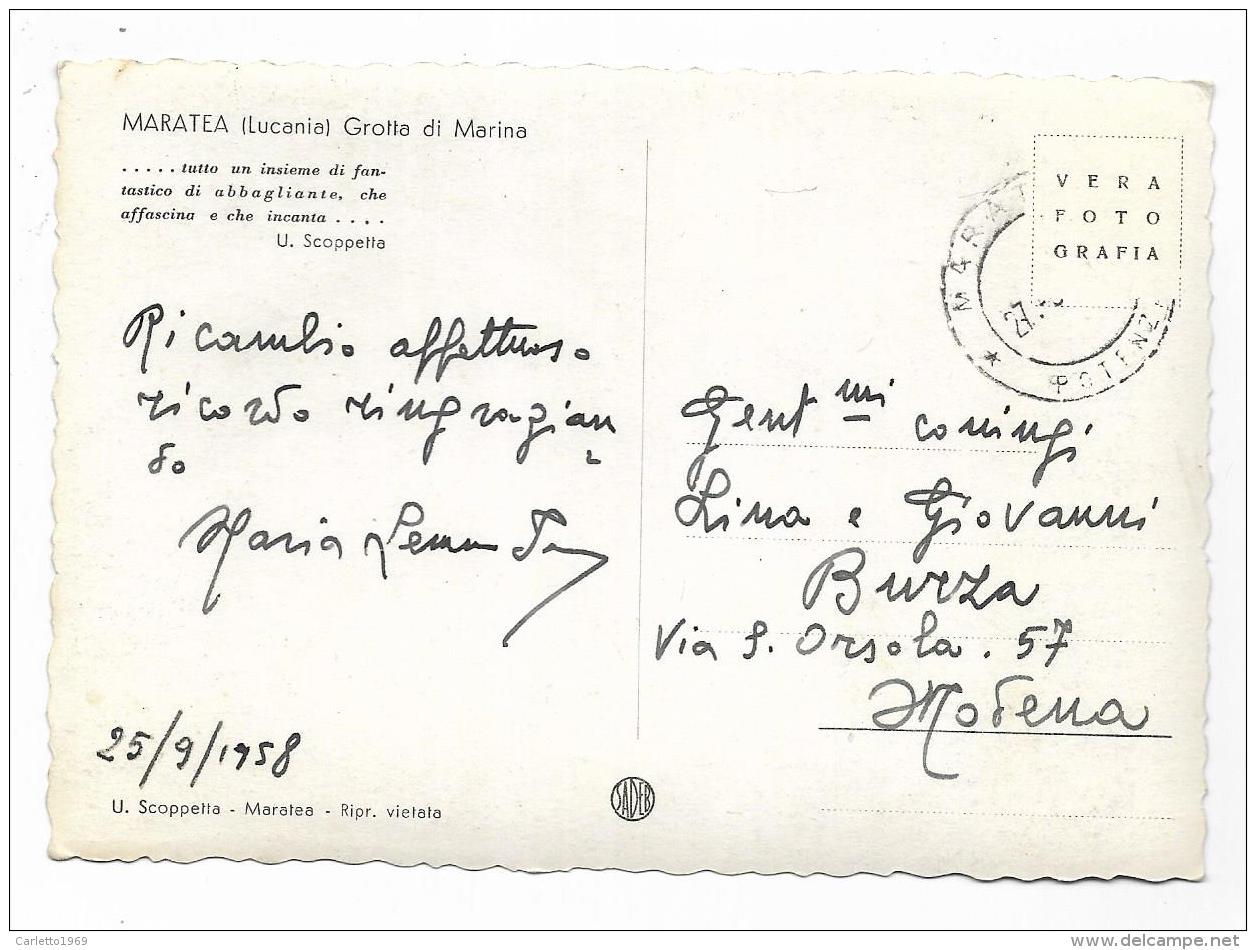 MARATEA (Lucania) Grotta di Marina
. . . . . tutto un insieme di fan-
tastico di abbagliante, che
affascina e che incanta . . . .
U. Scoppetta
Ricambio affettuoso
ricordo ringragian
do
Maria
25/9/1958
U. Scoppetta - Maratea - Ripr. vietata
SADEB
VERA
FOTO
GRAFIA
MARAT
27
POTENZ
Gent mi coniugi
Lina e Giovanni
Burza
Via S. Orsola. 57
Modena
Carletto1969
www.delcampe.net